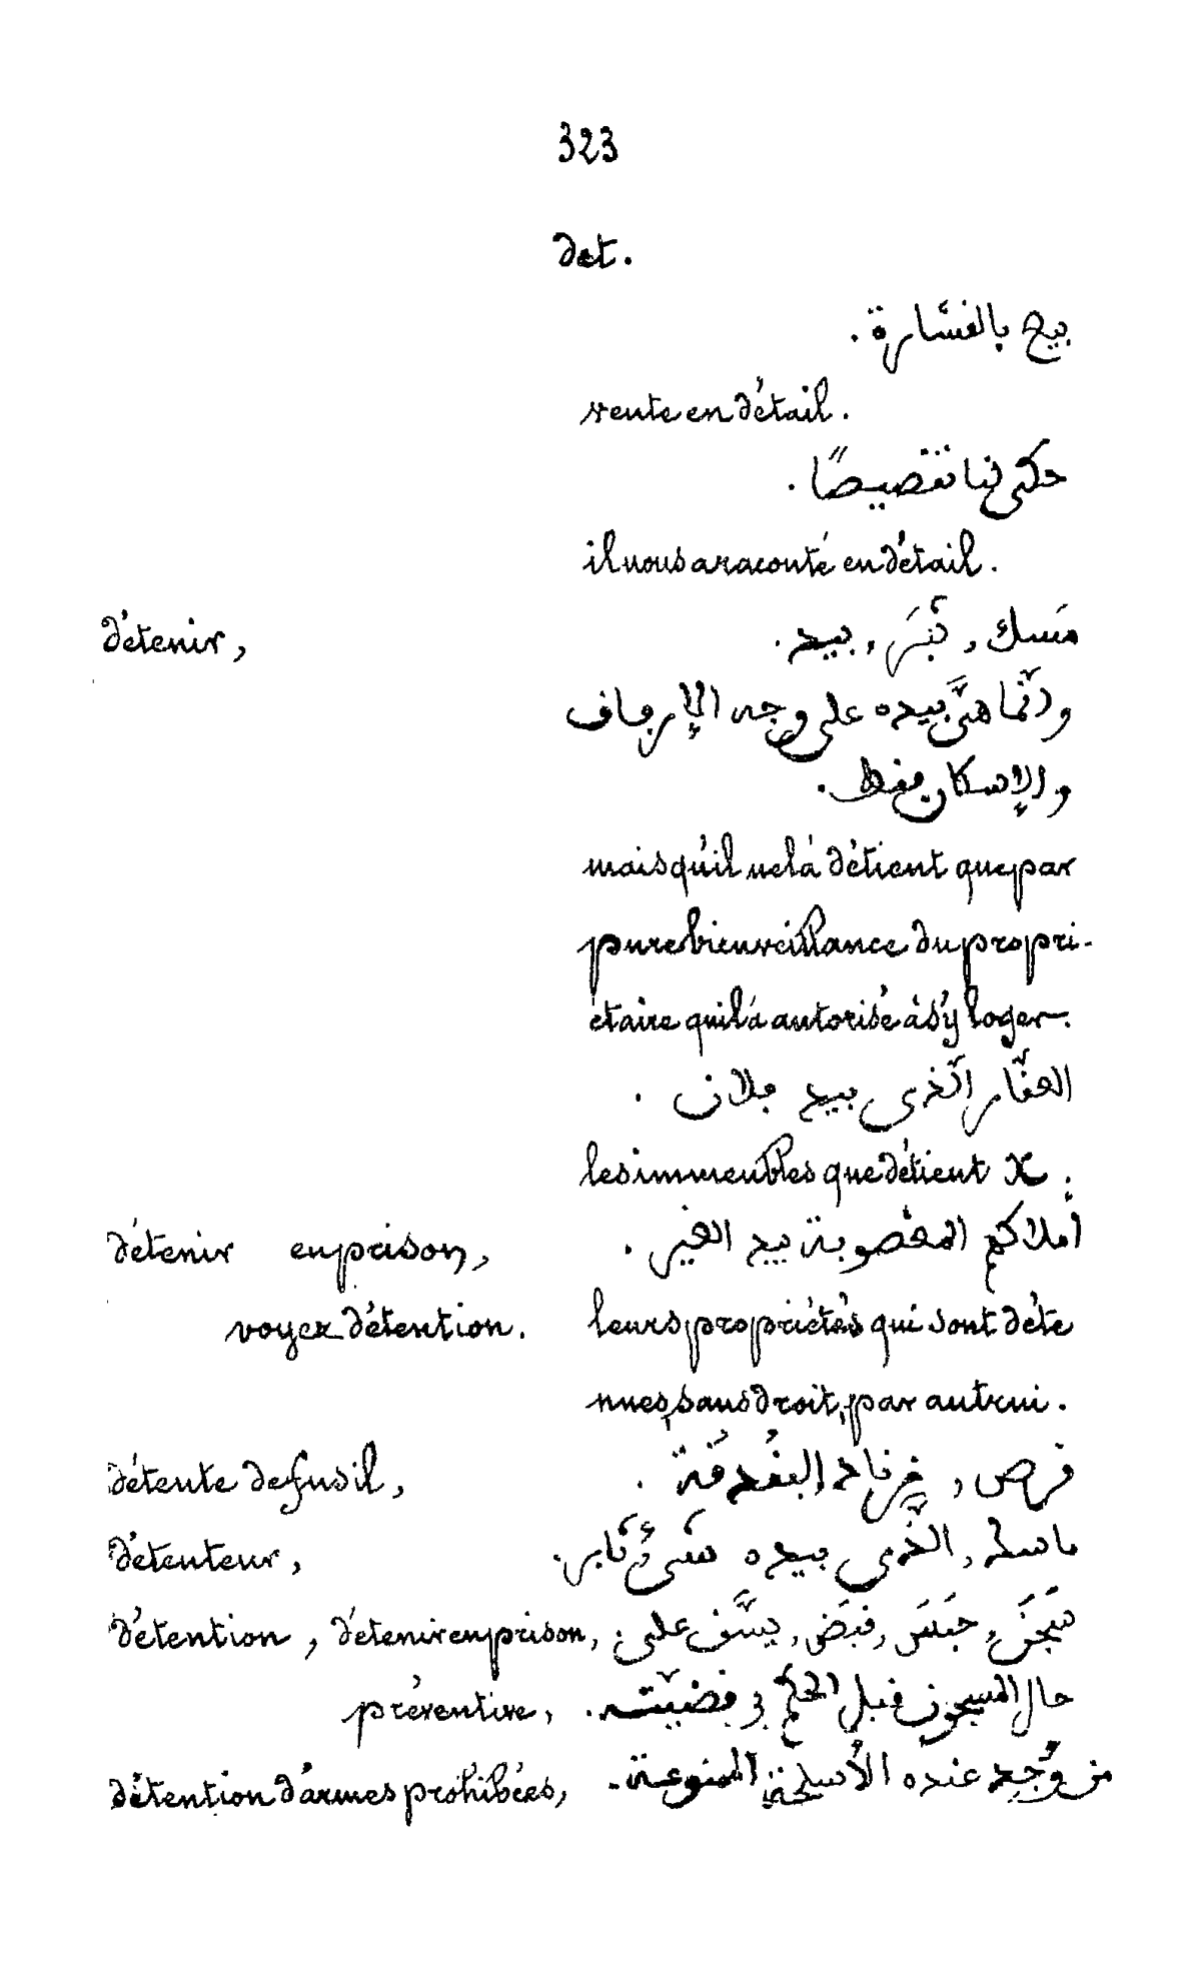 323
det.
بيع بالفشارة.
vente en détail.
حكى لنا تقصيصًا.
il nous a raconté en détail.
détenir, مَسك, بيد.
وانما هي بيده على وجه الإرفاق
والإسكان فقط.
mais qu'il ne la détient que par
pure bienveillance du propri-
étaire qui l'a autorisé à s'y loger.
العقار الذي بيد فلان.
les immeubles que détient X.
أملاكهم المغصوبة بيد الغير.
détenir en prison,
voyez détention.
leurs propriétés qui sont déte
nues, sans droit, par autrui.
détente de fusil, قرص,
détenteur, ماسك, الذي بيده شيء
détention, détenir en prison, سَجَنَ, حَبَسَ, قبَض, يسَّف على.
préventive, حال المسجون قبل الحكم في قضيّته.
détention d'armes prohibées, من وُجِد عنده الأسلحة الممنوعة.